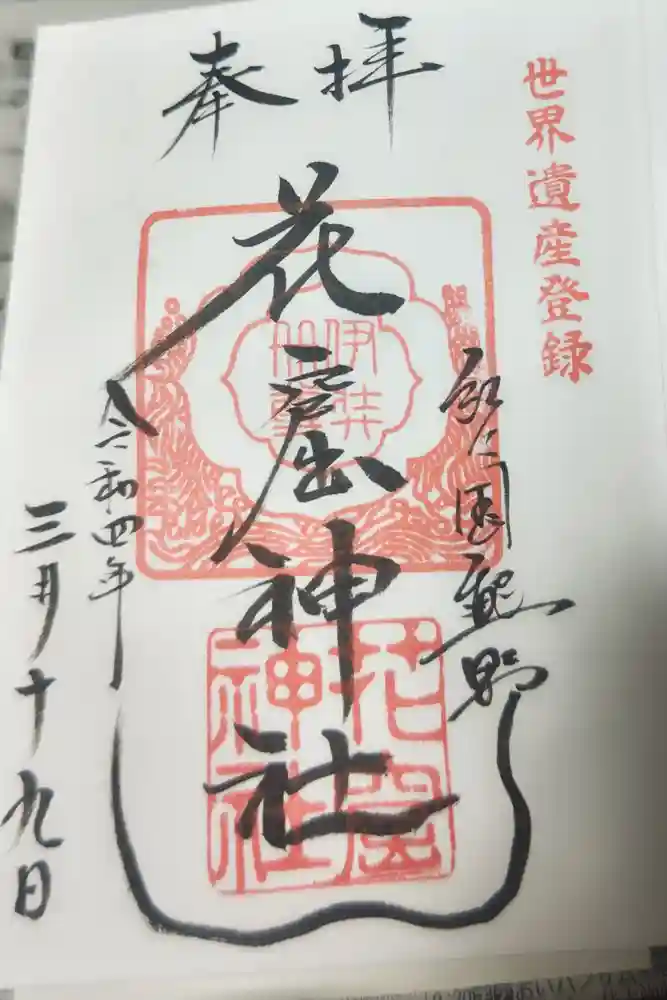 奉拝
世界遺産登録
国熊野
花窟神社
令和四年
三月十九日
伊弉
花窟
神社